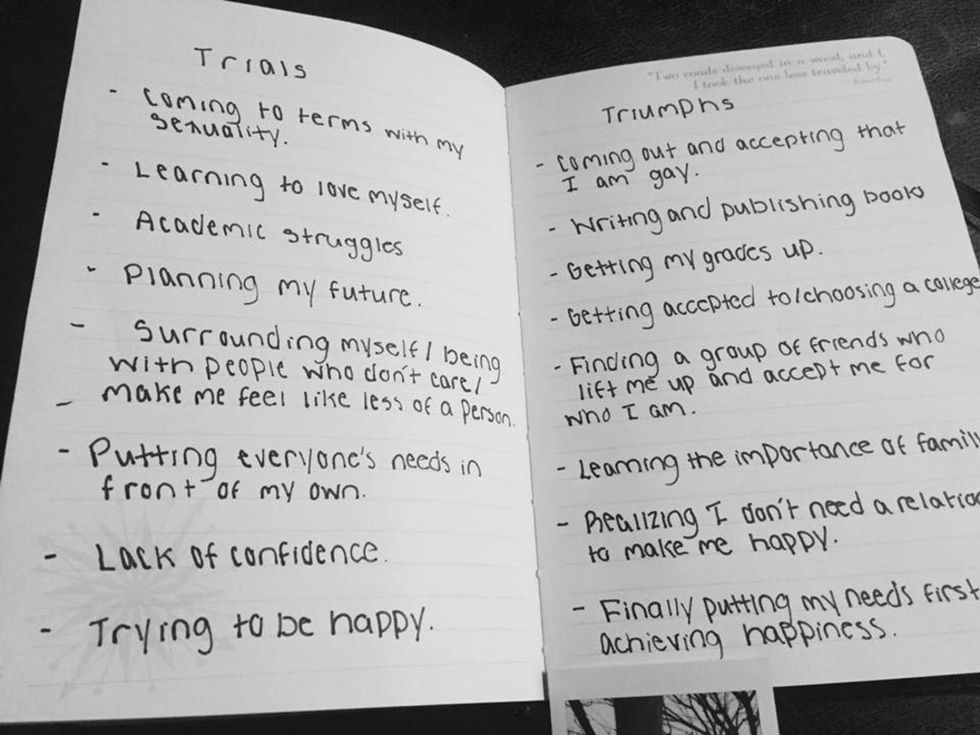 Trials
- Coming to terms with my
sexuality.
- Learning to love myself.
- Academic struggles
- Planning my future.
- Surrounding myself / being
with people who don't care/
- make me feel like less of a person.
- Putting everyone's needs in
front of my own.
- Lack of confidence.
- Trying to be happy.
"Two roads diverged in a wood, and I,
I took the one less traveled by"
Triumphs
- Coming out and accepting that
I am gay.
- Writing and publishing books
- Getting my grades up.
- Getting accepted to/choosing a college
- Finding a group of friends who
lift me up and accept me for
who I am.
- Learning the importance of famil
- Realizing I don't need a relatio
to make me happy.
- Finally putting my needs first
achieving happiness.